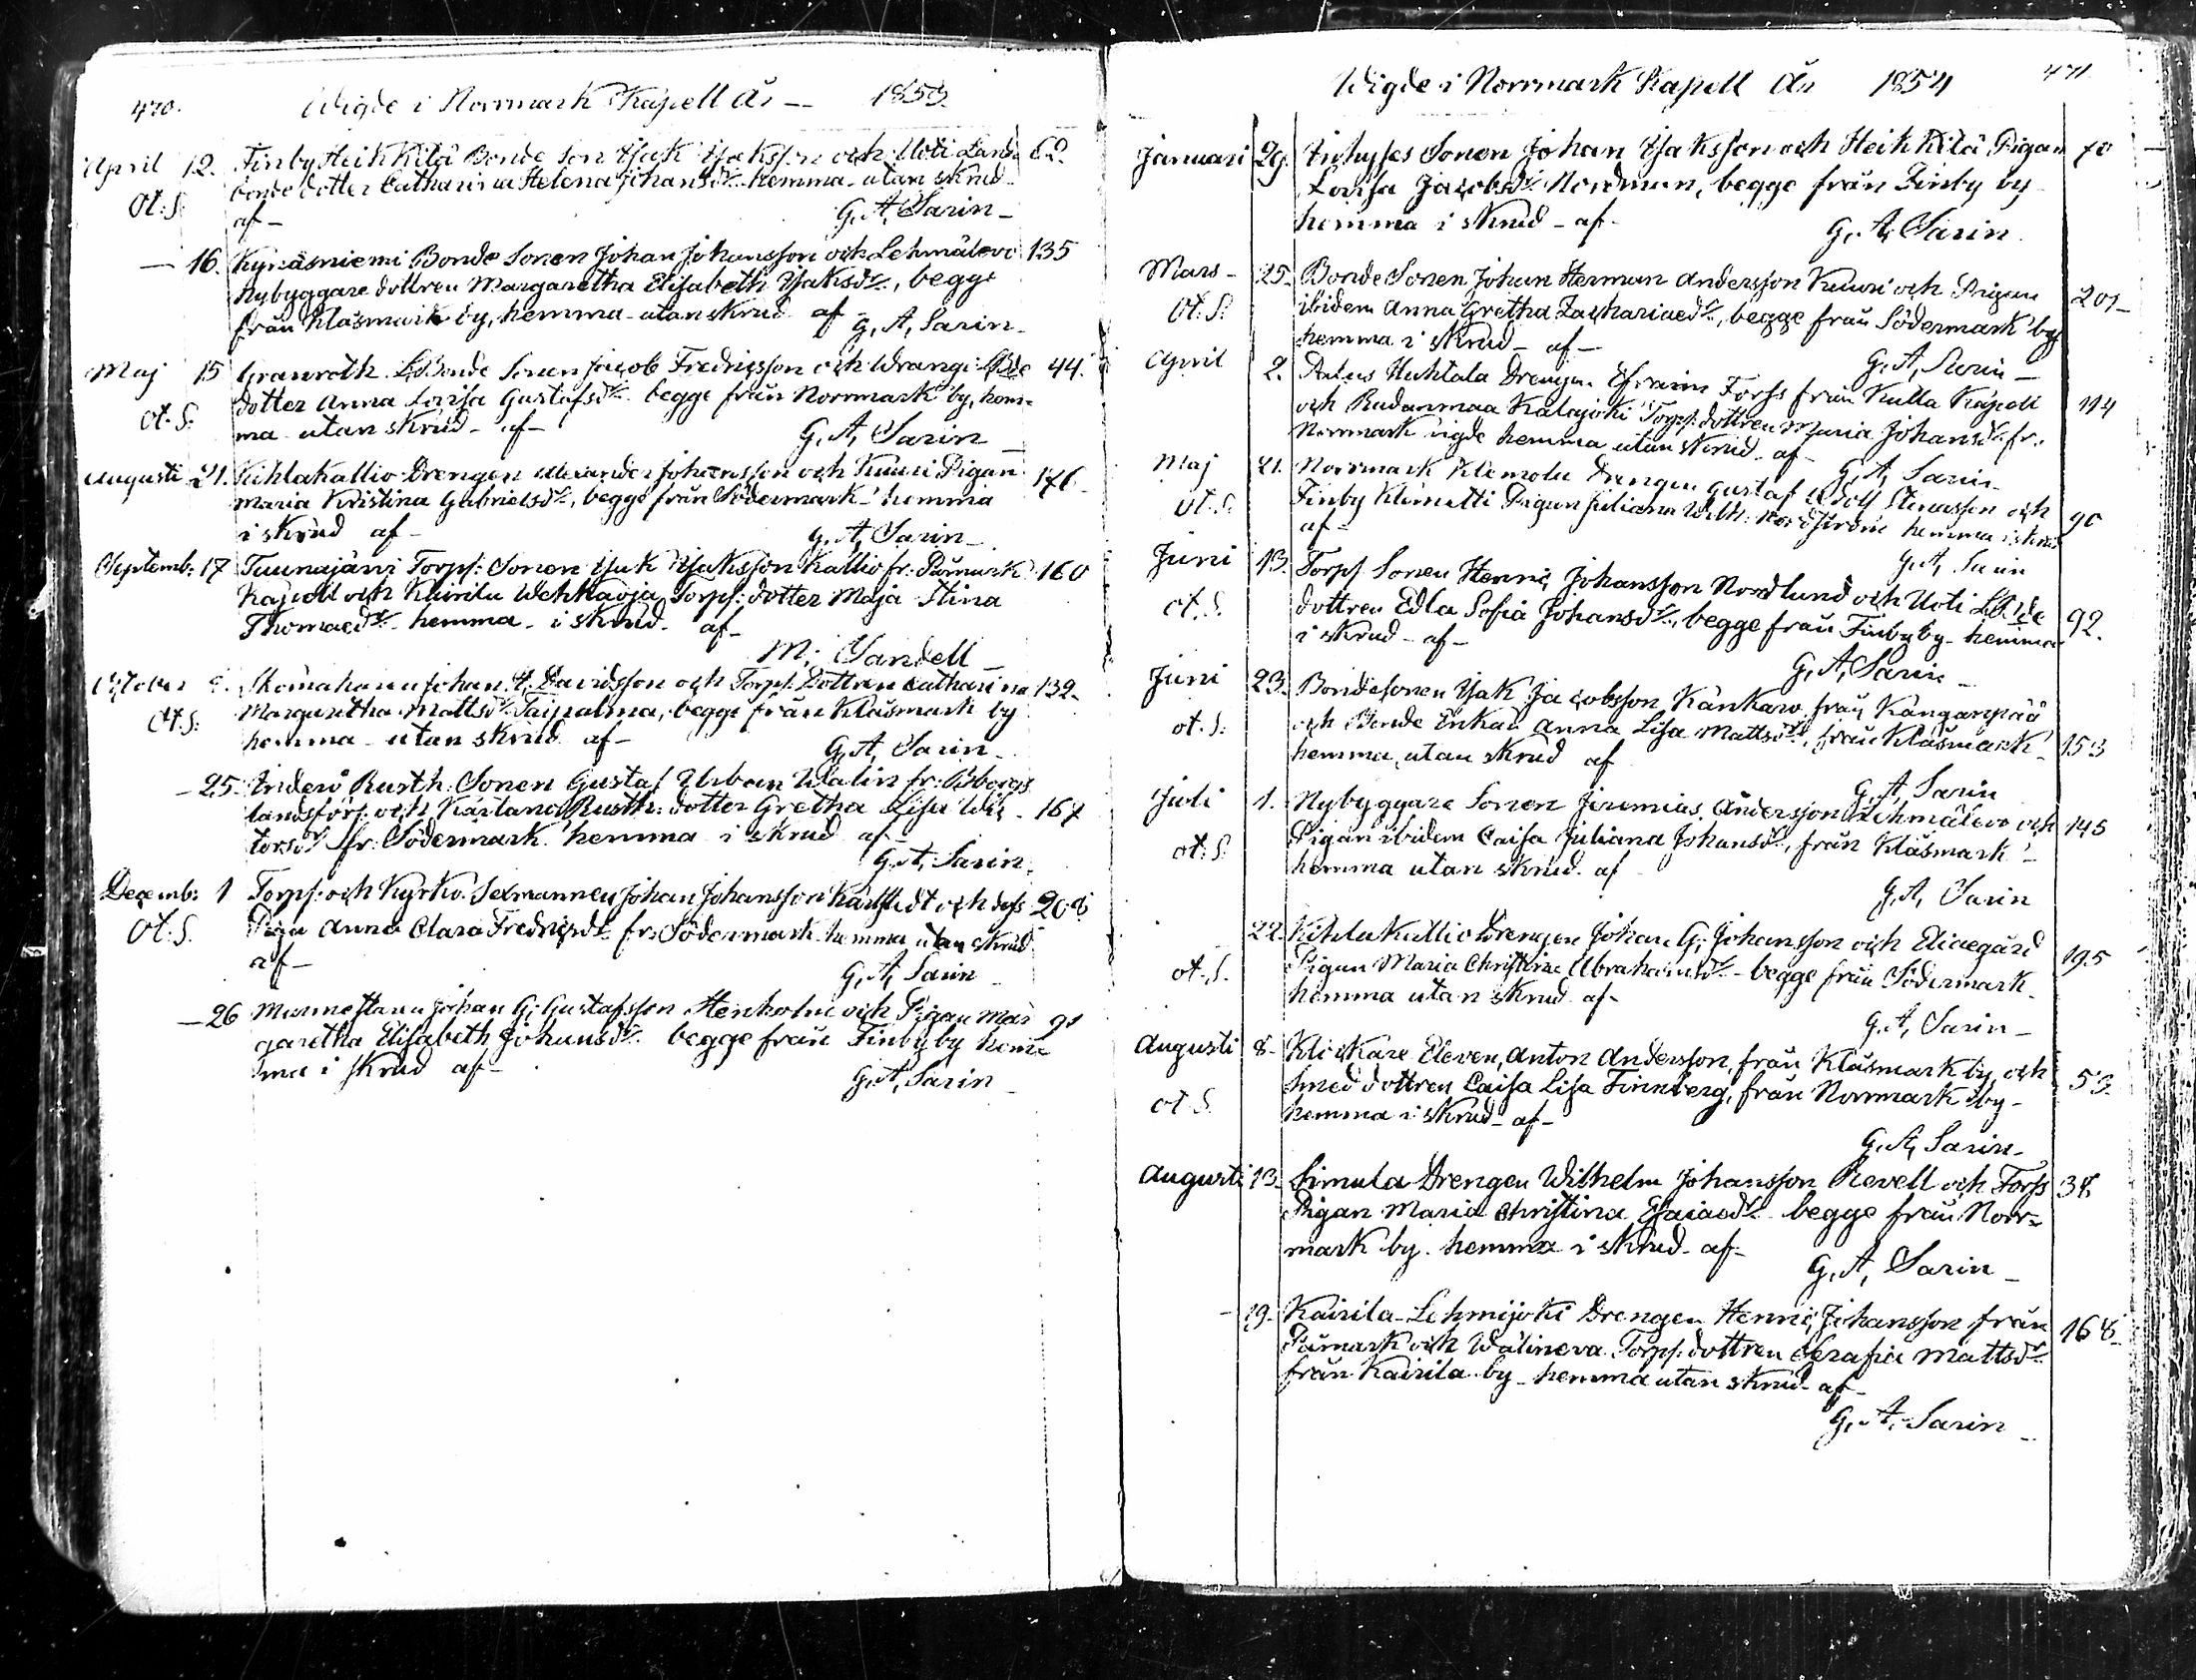 470. Wigde i Norrmark Kapell År — 1853.
April 12. Finby Heikkilä Bonde Son Isak Isaksson och Uoti Lands 62.
bonde dotter Catharina Helena Johansdr. hemma utan skrud
Ot: S: af — G. A. Sarin —
— 16. Kynäsniemi Bonde Sonen Johan Johansson och Lehmälevo 135
Nybyggare dottren Margaretha Elisabeth Isaksdr., begge
från Klåsmark by, hemma utan skrud af G. A. Sarin —
Maj 15 Granroth L. Bonde Sonen Jacob Fredricsson och Wrangi Bde 44.
dotter Anna Lovisa Gustafsdr. begge från Norrmark by, hem=
Ot. S. ma utan skrud — af — G. A. Sarin —
Augusti 21. Kihlakallio Drengen Alexander Johansson och Kuuri Pigan 176
Maria Kristina Gabrielsdr., begge från Södermark hemma
i skrud af — G. A. Sarin —
Septemb: 17 Tuunajärvi Torps: Sonen Isak Isaksson Kallio fr: Påmark 160
Kapell och Kairila Wehkaoja Torps: dotter Maja Stina
Thomaedr. hemma i skrud af —
M: Sandell —
October Skomakaren Johan H. Davidsson och Torps. Dottren Catharina 132.
Ot. S: Margaretha Mattsdr. Taipalma, begge från Klåsmark by
hemma utan skrud af — G. A. Sarin —
— 25. Rusth. Sonen Gustaf Urban Walin fr: Bborgs
landsförs: och Karlana Rusth: dotter Gretha Lisa Wic 167
torsdr. fr. Södermark hemma i skrud af —
G. A. Sarin.
Decemb: 1 Torps: och Kyrko Sexmannen Johan Johansson Karlstedt och dess 208
Ot. S. Piga Anna Clara Fredricsdr. fr: Södermark hemma utan skrud
af — G. A. Sarin
— 26 Murmestaren Johan G. Gustafsson Stenholm och Pigan Mar 91
garetha Elisabeth Johansdr. begge från Finby by hem=
ma i skrud af — G. A. Sarin —
Wigde i Norrmark Kapell År 1854 471.
Januari 29. Inhyses Sonen Johan Isaksson och Heikkilä Pigan 70
Lovisa Jacobsdr. Nordman, begge från Finby by
hemma i skrud — af — G. A. Sarin.
Mars — 25. Bonde Sonen Johan Herman Andersson Kuuri och Pigan 201
Ot. S: ibidem Anna Gretha Zachariaedr., begge från Södermark by
hemma i skrud — af — G. A. Sarin —
April 2. Huhtala Drengen Efraim Forss från Kulla Kapell
och Rudanmaa Kalajoki Torps: dottren Maria Johansdr. fr. 114
Norrmark vigde hemma utan skrud af —
G. A. Sarin
Maj 21. Norrmark Klemola Drengen Gustaf Adolf Stensson och
Ot. S. Finby Klemetti Pigan Juliana Wilh: Nordström hemma i skrud 90
af — G. A. Sarin
Juni 13. Torps Sonen Henric Johansson Nordlund och Uoti LBde
Ot. S. dottren Edla Sofia Johansdr., begge från Finby by hemma 92.
i skrud — af — G. A. Sarin —
Juni 23. Bondesonen Isak Jacobsson Kankaro från Kånganpää
Ot. S. och Bonde Enkan Anna Lisa Mattsdr., från Klåsmark 153
hemma utan skrud af
G. A. Sarin
Juli 1. Nybyggare Sonen Jeremias Andersson Lehmälevo och 145
Ot. S. Pigan ibidem Caisa Juliana Johansdr, från Klåsmark —
hemma utan skrud. af
G. A. Sarin
22. Kihlakallio Drengen Johan G. Johansson och Eliaegård 195
Ot. S. Pigan Maria Christina Abrahamsdr. — begge från Södermark
hemma utan skrud af —
G. A. Sarin —
Augusti 8. Klockare Eleven, Anton Andersson, från Klåsmark by, och
Ot S. Smed dottren Caisa Lisa Finnberg, från Norrmark by — 53
hemma i skrud — af —
G. A. Sarin —
Augusti 13. Simula Drengen Wilhelm Johansson Revell och Forss 38
Pigan Maria Christina Esaiaedr. begge från Norr=
mark by. hemma i skrud — af —
G. A. Sarin —
— 19. Kairila Lehmijoki Drengen Henric Johansson från
Påmark och Wälineva Torps: dottren Serafia Mattsdr. 168
från Kairila by — hemma utan skrud — af —
G. A. Sarin —